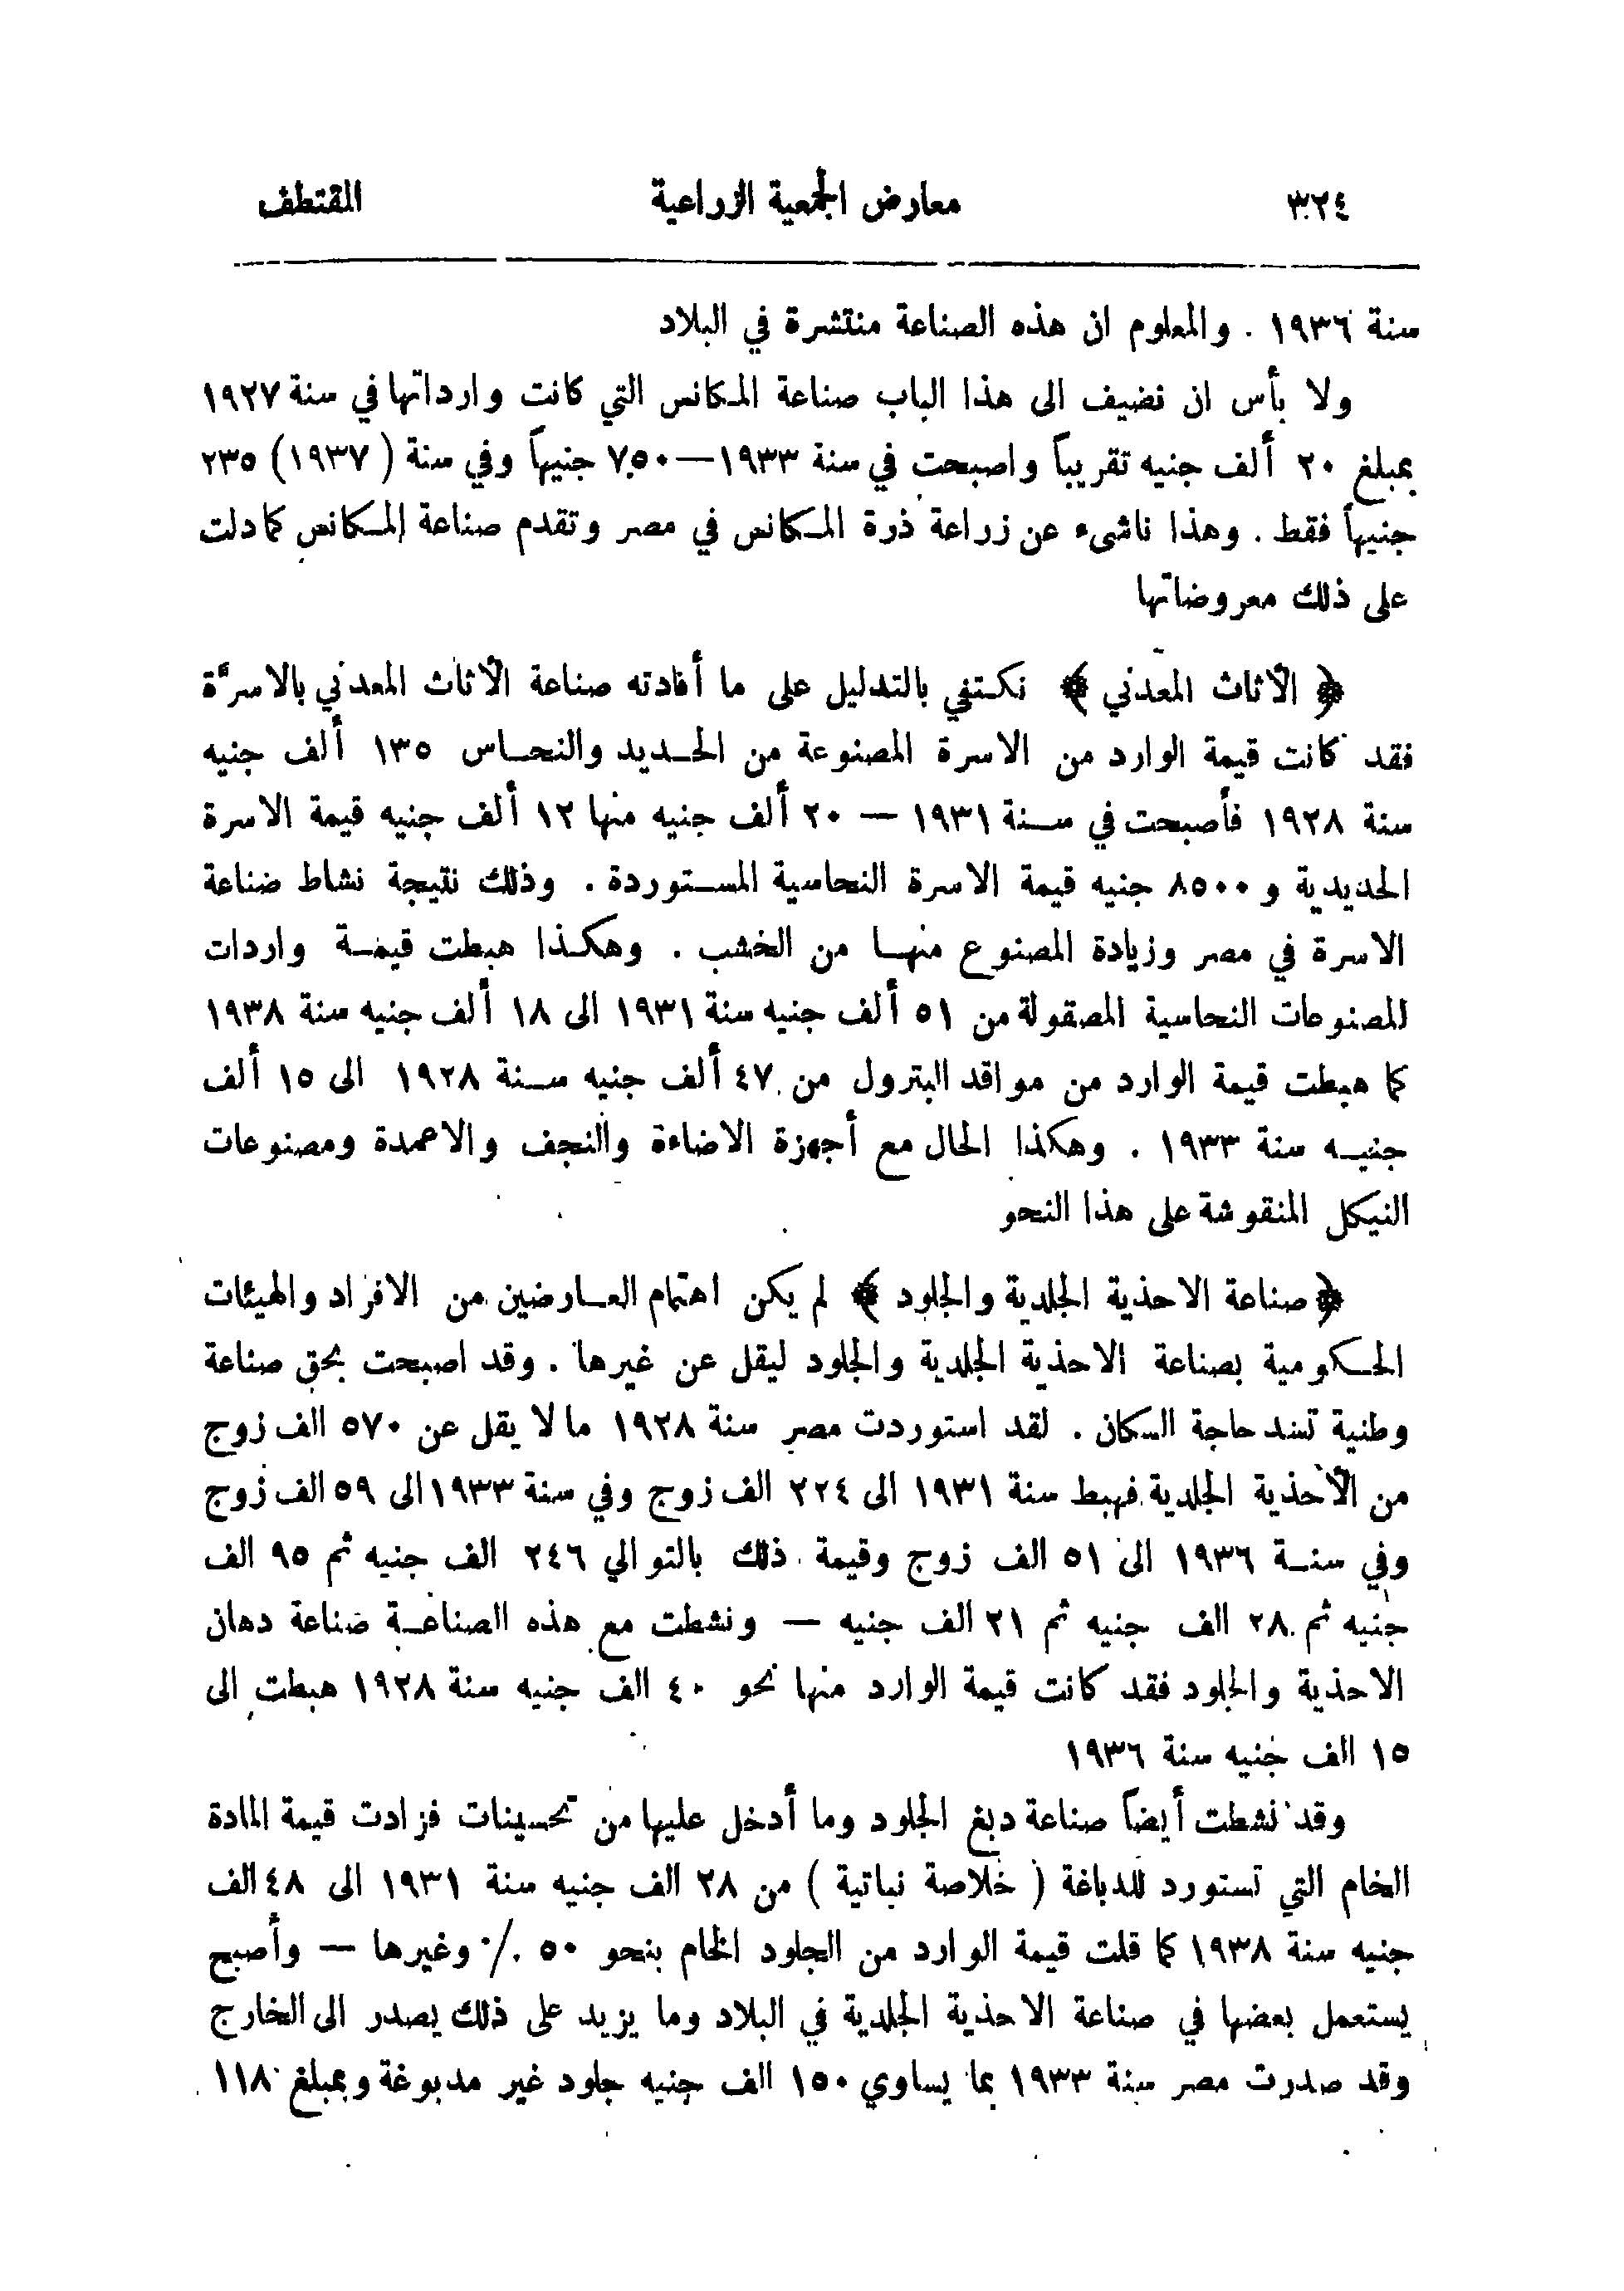 ٣٢٤ معارض الجمعية الزراعية المقتطف
سنة ١٩٣٦ . والمعلوم ان هذه الصناعة منتشرة في البلاد
ولا بأس ان نضيف الى هذا الباب صناعة المكانس التي كانت وارداتها في سنة ١٩٢٧
بمبلغ ٢٠ ألف جنيه تقريباً واصبحت في سنة ١٩٣٣—٧٥٠ جنيهاً وفي سنة (١٩٣٧) ٢٣٥
جنيهاً فقط . وهذا ناشىء عن زراعة ذرة المكانس في مصر وتقدم صناعة المكانس كما دلت
على ذلك معروضاتها
﴿ الأثاث المعدني ﴾ نكتفي بالتدليل على ما أفادته صناعة الأثاث المعدني بالاسرَّة
فقد كانت قيمة الوارد من الاسرة المصنوعة من الحديد والنحاس ١٣٥ ألف جنيه
سنة ١٩٢٨ فأصبحت في سنة ١٩٣١ — ٢٠ ألف جنيه منها ١٢ ألف جنيه قيمة الاسرة
الحديدية و ٨٥٠٠ جنيه قيمة الاسرة النحاسية المستوردة . وذلك نتيجة نشاط صناعة
الاسرة في مصر وزيادة المصنوع منها من الخشب . وهكذا هبطت قيمة واردات
المصنوعات النحاسية المصقولة من ٥١ ألف جنيه سنة ١٩٣١ الى ١٨ ألف جنيه سنة ١٩٣٨
كما هبطت قيمة الوارد من مواقد البترول من ٤٧ ألف جنيه سنة ١٩٢٨ الى ١٥ ألف
جنيه سنة ١٩٣٣ . وهكذا الحال مع أجهزة الاضاءة والنجف والاعمدة ومصنوعات
النيكل المنقوشة على هذا النحو
﴿ صناعة الاحذية الجلدية والجلود ﴾ لم يكن اهتمام العارضين من الافراد والهيئات
الحكومية بصناعة الاحذية الجلدية والجلود ليقل عن غيرها . وقد اصبحت بحق صناعة
وطنية تسد حاجة السكان . لقد استوردت مصر سنة ١٩٢٨ ما لا يقل عن ٥٧٠ الف زوج
من الأحذية الجلدية فهبط سنة ١٩٣١ الى ٢٢٤ الف زوج وفي سنة ١٩٣٣ الى ٥٩ الف زوج
وفي سنة ١٩٣٦ الى ٥١ الف زوج وقيمة ذلك بالتوالي ٢٤٦ الف جنيه ثم ٩٥ الف
جنيه ثم ٢٨ الف جنيه ثم ٢١ الف جنيه — ونشطت مع هذه الصناعة صناعة دهان
الاحذية والجلود فقد كانت قيمة الوارد منها نحو ٤٠ الف جنيه سنة ١٩٢٨ هبطت الى
١٥ الف جنيه سنة ١٩٣٦
وقد نشطت أيضاً صناعة دبغ الجلود وما أدخل عليها من تحسينات فزادت قيمة المادة
الخام التي تستورد للدباغة ( خلاصة نباتية ) من ٢٨ الف جنيه سنة ١٩٣١ الى ٤٨ الف
جنيه سنة ١٩٣٨ كما قلت قيمة الوارد من الجلود الخام بنحو ٥٠ ٪ وغيرها — وأصبح
يستعمل بعضها في صناعة الاحذية الجلدية في البلاد وما يزيد على ذلك يصدر الى الخارج
وقد صدرت مصر سنة ١٩٣٣ بما يساوي ١٥٠ الف جنيه جلود غير مدبوغة وبمبلغ ١١٨